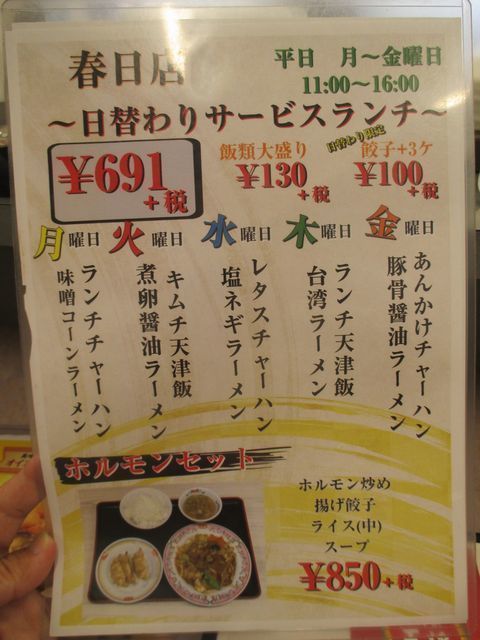 春日店
平日 月～金曜日
11:00～16:00
～日替わりサービスランチ～
¥691
+税
飯類大盛り
¥130
+税
日替わり限定
餃子+3ケ
¥100
+税
月曜日
ランチチャーハン
味噌コーンラーメン
火曜日
キムチ天津飯
煮卵醤油ラーメン
水曜日
レタスチャーハン
塩ネギラーメン
木曜日
ランチ天津飯
台湾ラーメン
金曜日
あんかけチャーハン
豚骨醤油ラーメン
ホルモンセット
ホルモン炒め
揚げ餃子
ライス(中)
スープ
¥850+税